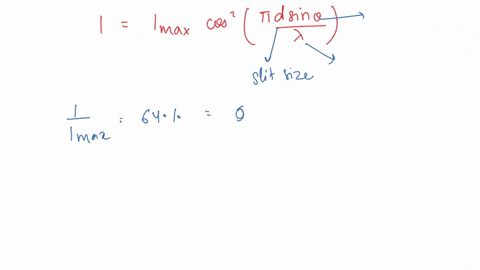 I = Imax cos² (πd sinθ / λ)
slit size
I / Imax = 64% = 0